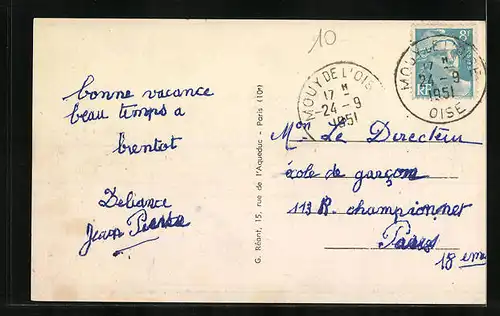 10-
8F
RF
MOUY DE L'OISE
17 H
24 - 9
1951
17 H
24 - 9
1951
OISE
bonne vacance
beau temps a
bientot
Deliance
Jean Pierre
G. Réant, 15, rue de l'Aqueduc - Paris (10e)
Mon. Le Directeur
école de garçon
113 R. championnet
Paris
18 eme